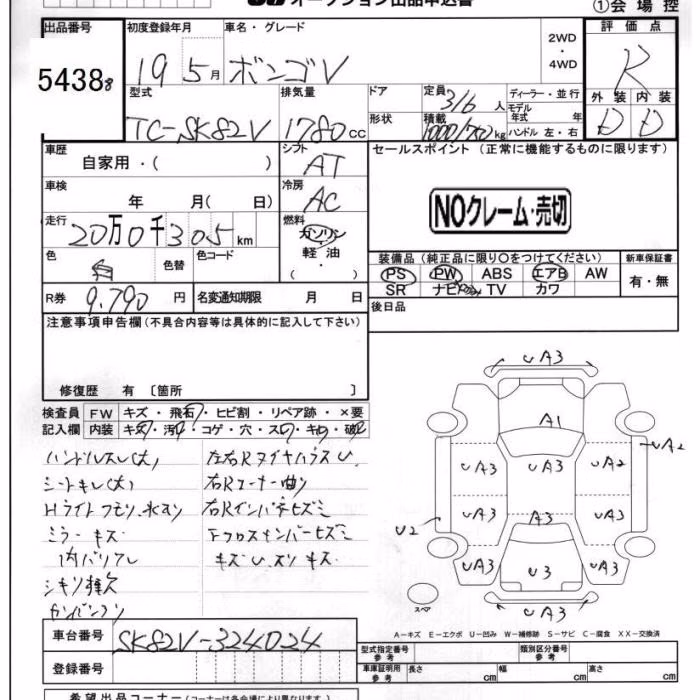 オークション出品申込書
①会場控
出品番号
54388
初度登録年月
車名・グレード
19 5月 ボンゴV
2WD
・
4WD
評価点
R
外装 内装
D D
型式
TC-SK82V
排気量
1780cc
ドア
形状
定員
3/6人
積載
1000/750kg
ディーラー・並行
モデル年式 年
ハンドル 左・右
車歴
自家用・( )
シフト
AT
車検
年 月( 日)
冷房
AC
走行
20万0千305km
燃料
ガソリン
・
軽油
( )
色
白
色替
色コード
R券 9,790円
名変通知期限 月 日
セールスポイント(正常に機能するものに限ります)
NOクレーム・売切
装備品(純正品に限り〇をつけてください)
新車保証書
PS PW ABS エアB AW
有・無
SR ナビ TV カワ
後日品
注意事項申告欄(不具合内容等は具体的に記入して下さい)
修復歴 有 〔箇所 〕
検査員 FW キズ・飛石・ヒビ割・リペア跡・×要
記入欄 内装 キズ・汚・コゲ・穴・スレ・キレ・破
ハンドルスレ(大)
シートキレ(大)
Hライトクモリ.水入り
ミラーキズ
内バリワレ
シキリ棒欠
右Rコーナー曲り
右Rインパネヒズミ
キズU.スリキズ
UA3
A1
UA2
UA3 UA3 UA2
UA3 A3 UA3
U2
UA3 U3 UA3
UA3
スペア
A-キズ E-エクボ U-凹み W-補修跡 S-サビ C-腐食 XX-交換済
車台番号
SK82V-324024
登録番号
型式指定番号
参考
類別区分番号
参考
車庫証明用
参考
長さ cm 幅 cm 高さ cm
希望出品コーナー(コーナーは各会場により異なります。)